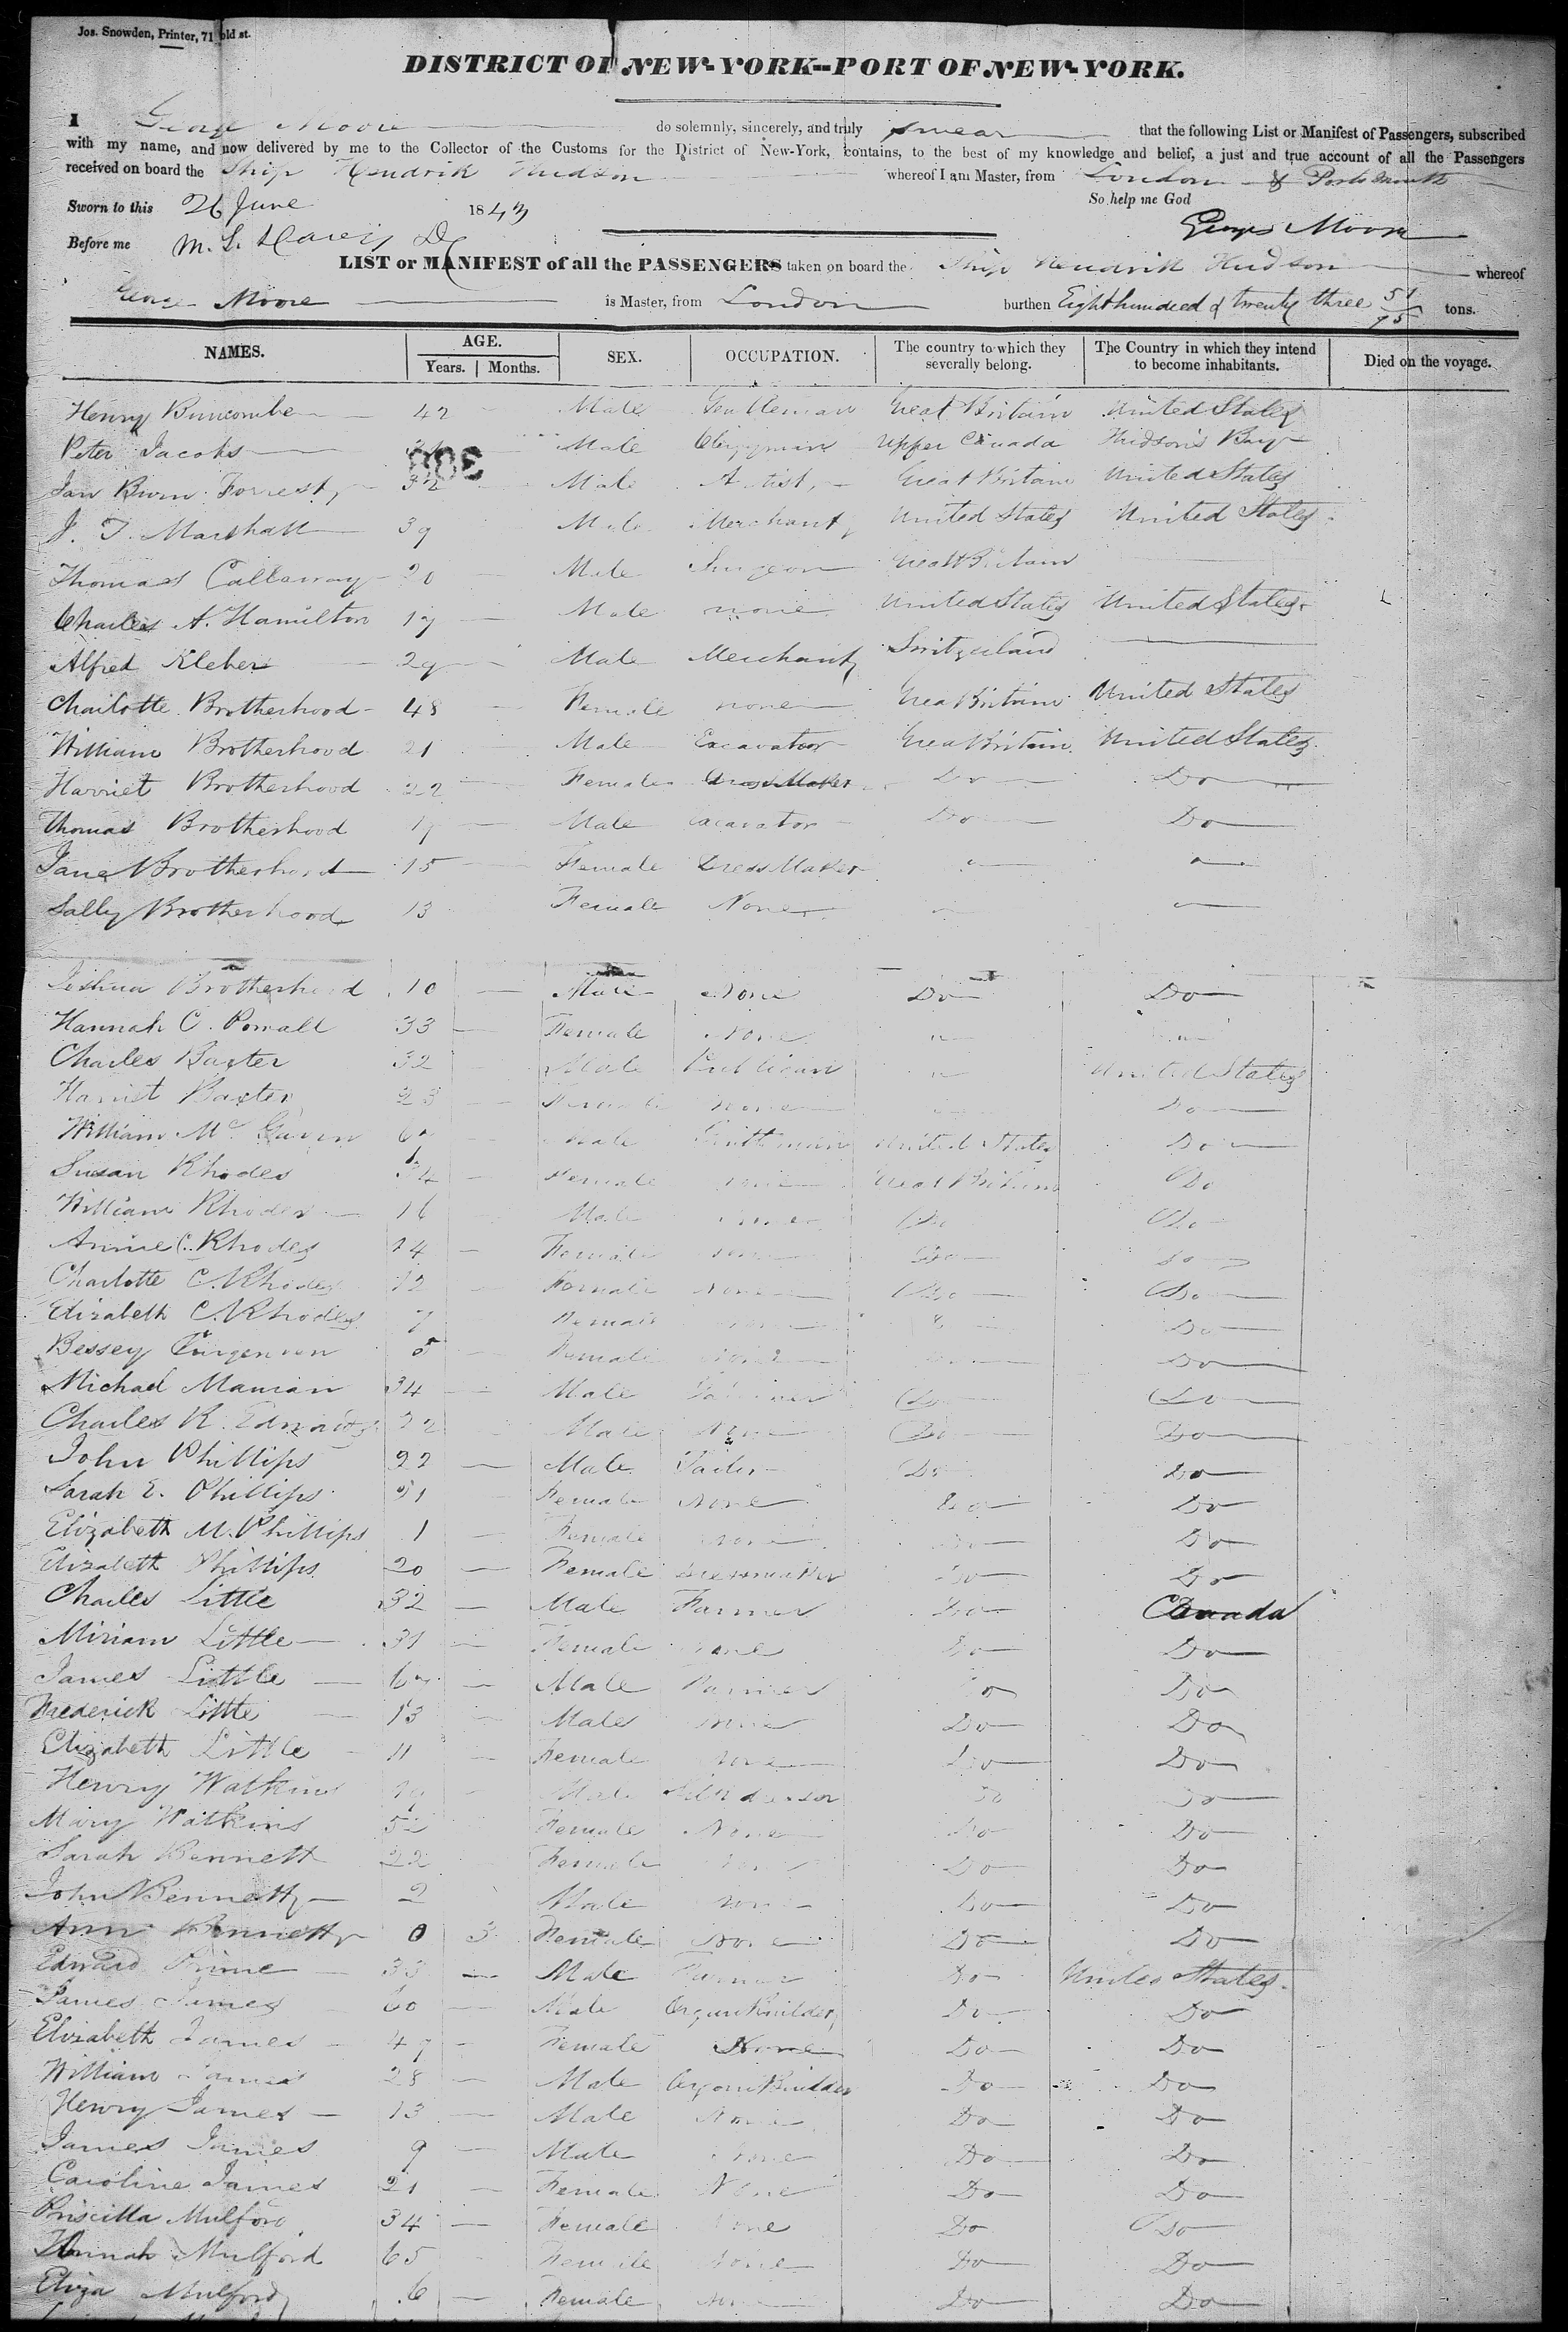 Jos. Snowden, Printer, 71 old st.
DISTRICT OF NEW-YORK--PORT OF NEW-YORK.
I George Moore do solemnly, sincerely, and truly swear that the following List or Manifest of Passengers, subscribed
with my name, and now delivered by me to the Collector of the Customs for the District of New-York, contains, to the best of my knowledge and belief, a just and true account of all the Passengers
received on board the Ship Hendrik Hudson whereof I am Master, from London & Portsmouth
Sworn to this 26 June 1843 So help me God
Before me George Moore
LIST or MANIFEST of all the PASSENGERS taken on board the Ship Hendrik Hudson whereof
George Moore is Master, from London burthen Eight hundred & twenty three 51/95 tons.
NAMES. AGE. Years. Months. SEX. OCCUPATION. The country to which they severally belong. The Country in which they intend to become inhabitants. Died on the voyage.
Henry Buncombe 42 Male Gentleman Great Britain United States
Peter Jacobs Male Clergyman Upper Canada Hudson's Bay
308
Ian Burn Forrest 32 Male Artist Great Britain United States
J. T. Marshall 39 Male Merchant United States United States
Thomas Callaway 20 Male Surgeon Great Britain
Charles A. Hamilton 19 Male none United States United States
Alfred Kleber 29 Male Merchant Switzerland
Charlotte Brotherhood 48 Female none Great Britain United States
William Brotherhood 21 Male Excavator Great Britain United States
Harriet Brotherhood 22 Female Dress Maker Do Do
Thomas Brotherhood 19 Male Excavator Do Do
Jane Brotherhood 15 Female Dress Maker " "
Sally Brotherhood 13 Female None " "
Joshua Brotherhood 10 Male None Do Do
Hannah C. Pornall 33 Female None " "
Charles Baxter 32 Male Publican " United States
Harriet Baxter 23 Female none " Do
William Mc Gavin Male Gentleman United States Do
Susan Rhodes 34 Female none Great Britain Do
William Rhodes 16 Male none Do Do
Annie C. Rhodes 14 Female none Do Do
Charlotte C. Rhodes 12 Female none Do Do
Elizabeth C. Rhodes 7 Female Do
Bessey 5 Female none Do Do
Michael Manian 34 Male Do Do
Charles R. Edwards 22 Male None Do Do
John Phillips 22 Male Tailor Do Do
Sarah E. Phillips 21 Female None Do Do
Elizabeth M. Phillips 1 Female none Do Do
Elizabeth Phillips 20 Female dressmaker Do Do
Charles Little 32 Male Farmer Do Canada
Miriam Little 31 Female none Do Do
James Little Male Farmer Do Do
Frederick Little 13 Male none Do Do
Elizabeth Little 11 Female none Do Do
Henry Watkins Male Do Do
Mary Watkins 52 Female None Do Do
Sarah Bennett 22 Female none Do Do
John Bennett 2 Male none Do Do
Ann Bennett 0 3 Female None Do Do
Edward Prime 33 Male Farmer Do United States
James James 60 Male Organ Builder Do Do
Elizabeth James 49 Female None Do Do
William James 28 Male Organ Builder Do Do
Henry James 13 Male None Do Do
James James 9 Male None Do Do
Caroline James 21 Female None Do Do
Priscilla Mulford 34 Female none Do Do
Hannah Mulford 65 Female none Do Do
Eliza Mulford 6 Female none Do Do